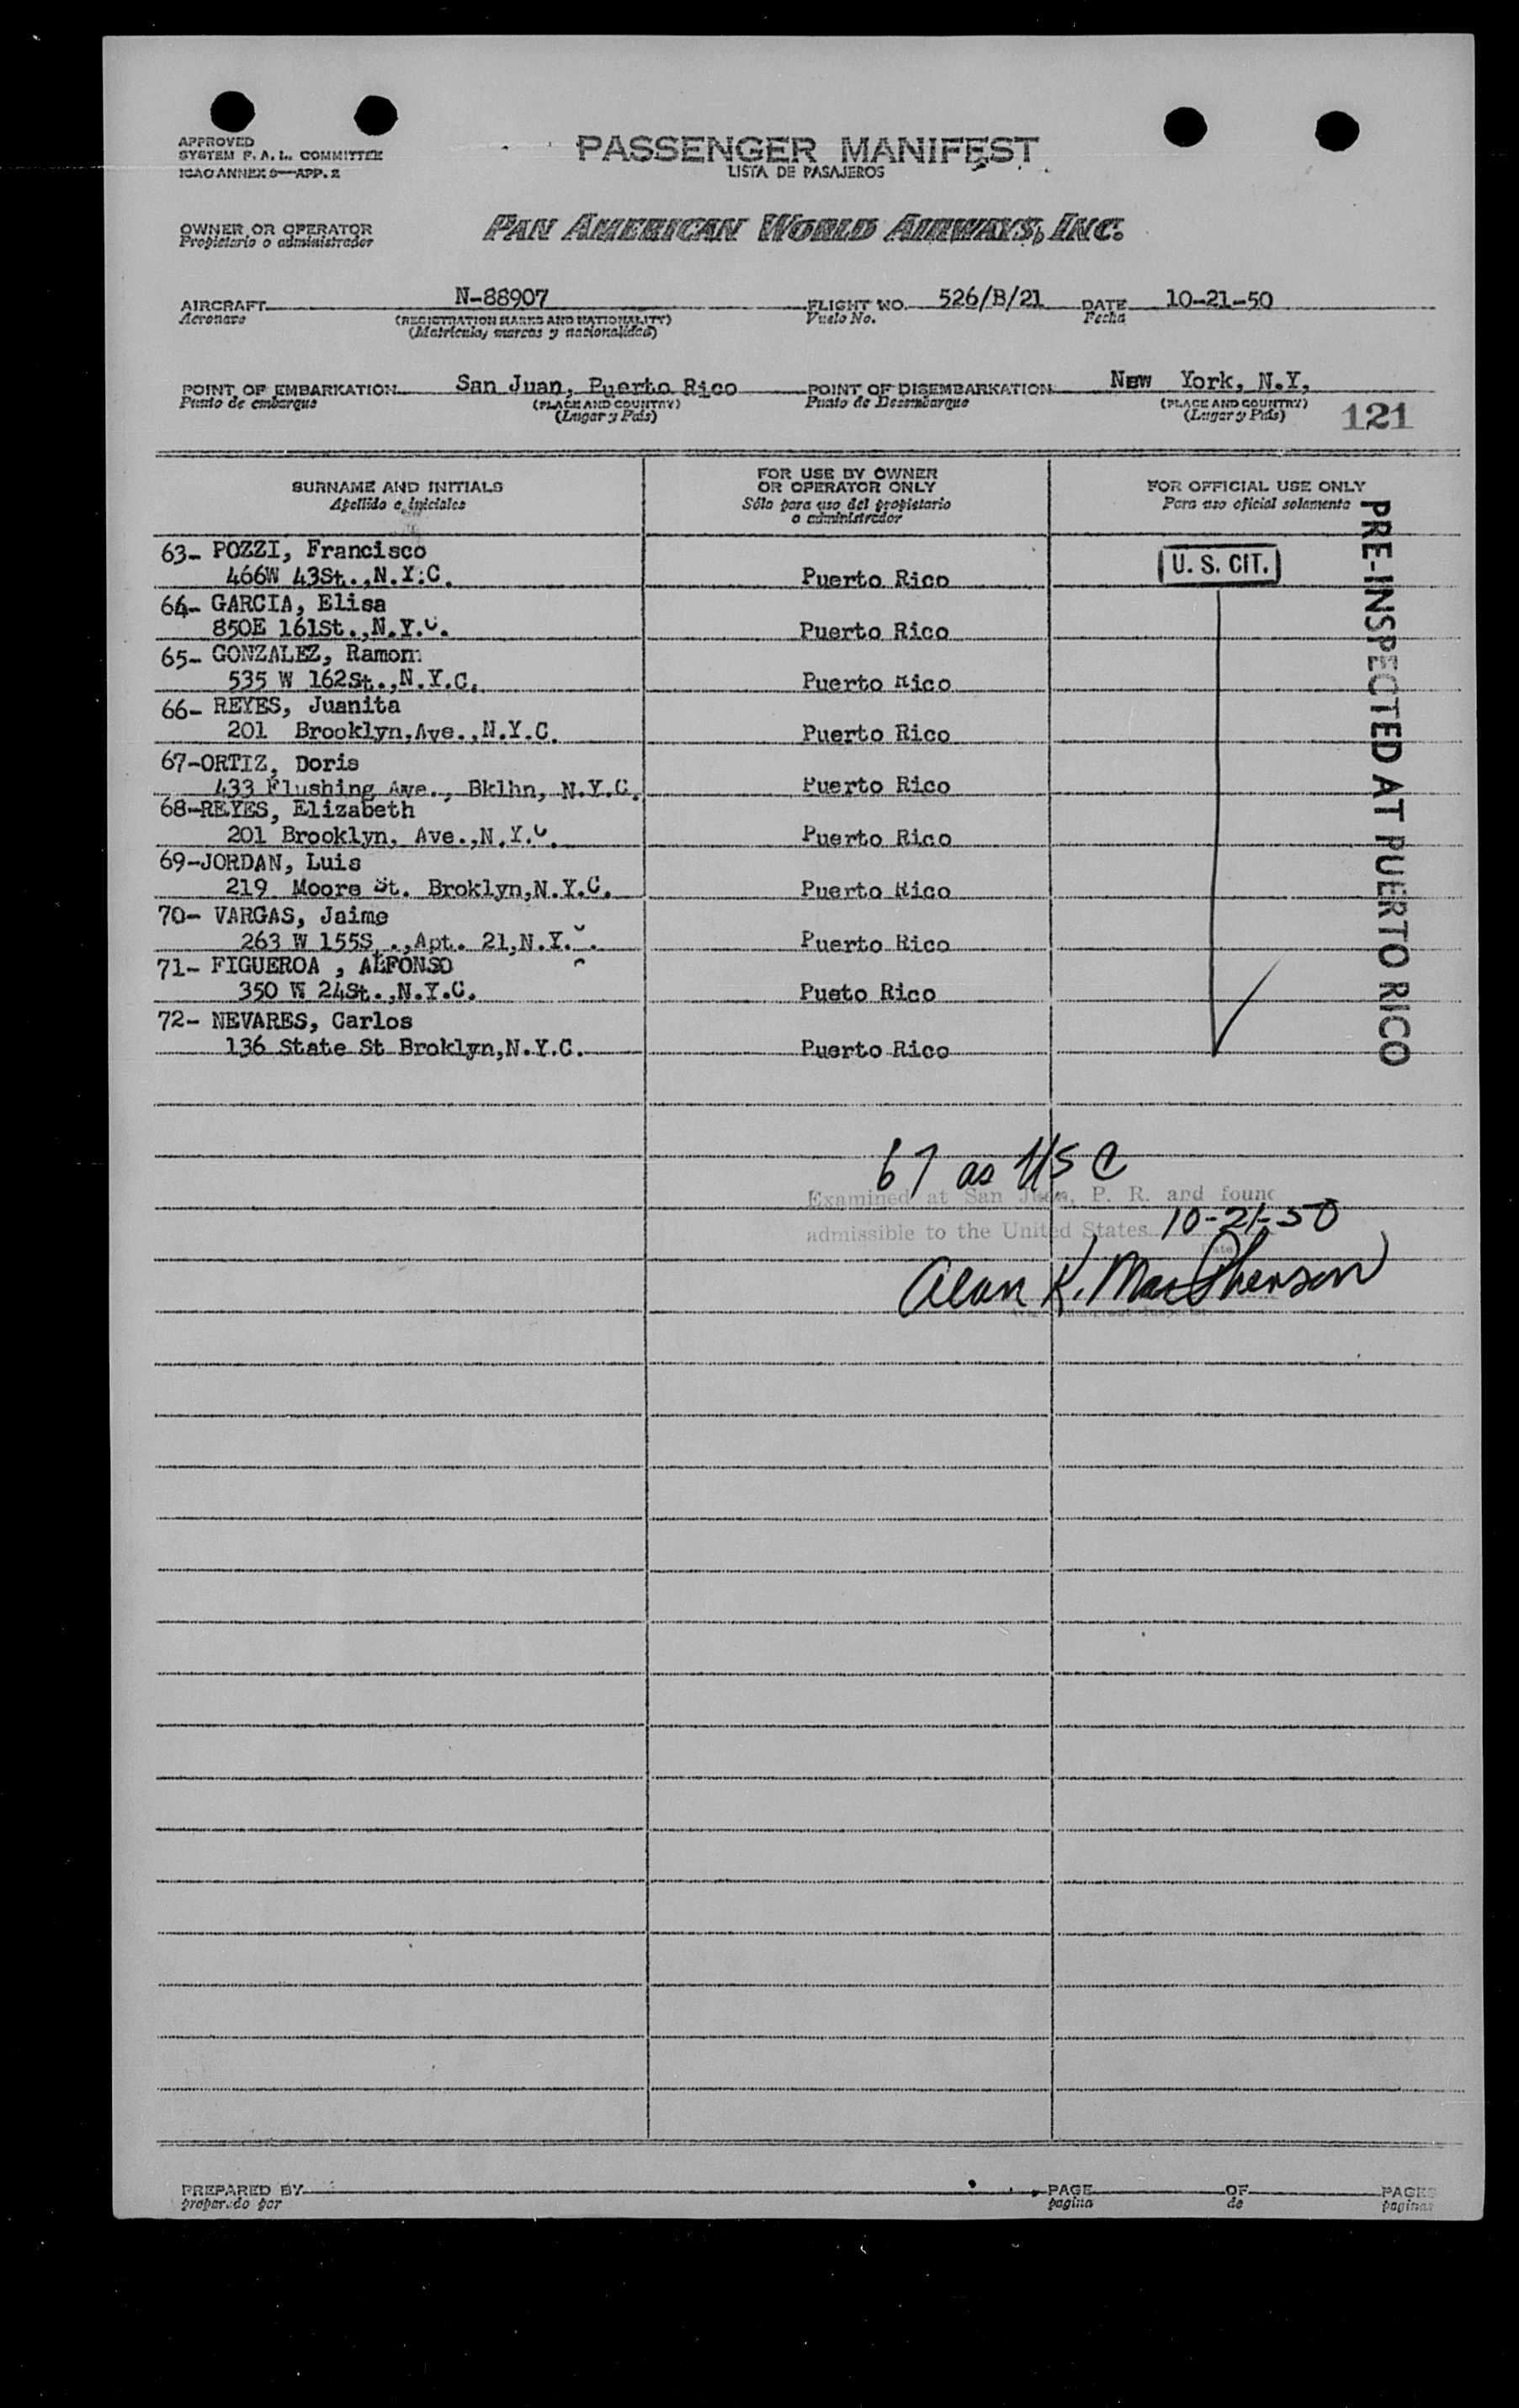 APPROVED
SYSTEM F. A. L. COMMITTEE
ICAO ANNEX 9—APP. 2
PASSENGER MANIFEST
LISTA DE PASAJEROS
OWNER OR OPERATOR
Propietario o administrador
PAN AMERICAN WORLD AIRWAYS, INC.
AIRCRAFT N-88907 FLIGHT NO. 526/B/21 DATE 10-21-50
Aeronave (REGISTRATION MARKS AND NATIONALITY) Vuelo No. Fecha
(Matricula, marcas y nacionalidad)
POINT OF EMBARKATION San Juan, Puerto Rico POINT OF DISEMBARKATION New York, N.Y,
Punto de embarque (PLACE AND COUNTRY) Punto de Desembarque (PLACE AND COUNTRY)
(Lugar y País) (Lugar y País) 121
SURNAME AND INITIALS
Apellido e iniciales
FOR USE BY OWNER
OR OPERATOR ONLY
Sólo para uso del propietario
o administrador
FOR OFFICIAL USE ONLY
Para uso oficial solamente
63- POZZI, Francisco
466W 43St.,N.Y.C. Puerto Rico U. S. CIT.
64- GARCIA, Elisa
850E 161St.,N.Y.C. Puerto Rico
65- GONZALEZ, Ramon
535 W 162St.,N.Y.C. Puerto Rico
66- REYES, Juanita
201 Brooklyn,Ave.,N.Y.C. Puerto Rico
67-ORTIZ, Doris
433 Flushing Ave., Bklhn, N.Y.C. Puerto Rico
68-REYES, Elizabeth
201 Brooklyn, Ave.,N.Y.C. Puerto Rico
69-JORDAN, Luis
219 Moore St. Broklyn,N.Y.C. Puerto Rico
70- VARGAS, Jaime
263 W 155S .,Apt. 21,N.Y.C. Puerto Rico
71- FIGUEROA , ALFONSO
350 W 24St.,N.Y.C. Pueto Rico
72- NEVARES, Carlos
136 State St Broklyn,N.Y.C. Puerto Rico
PRE-INSPECTED AT PUERTO RICO
67 as USC
Examined at San Juan, P. R. and found
admissible to the United States 10-21-50
Date
Alan K. MacPherson
PREPARED BY PAGE OF PAGES
preparado por pagina de paginas